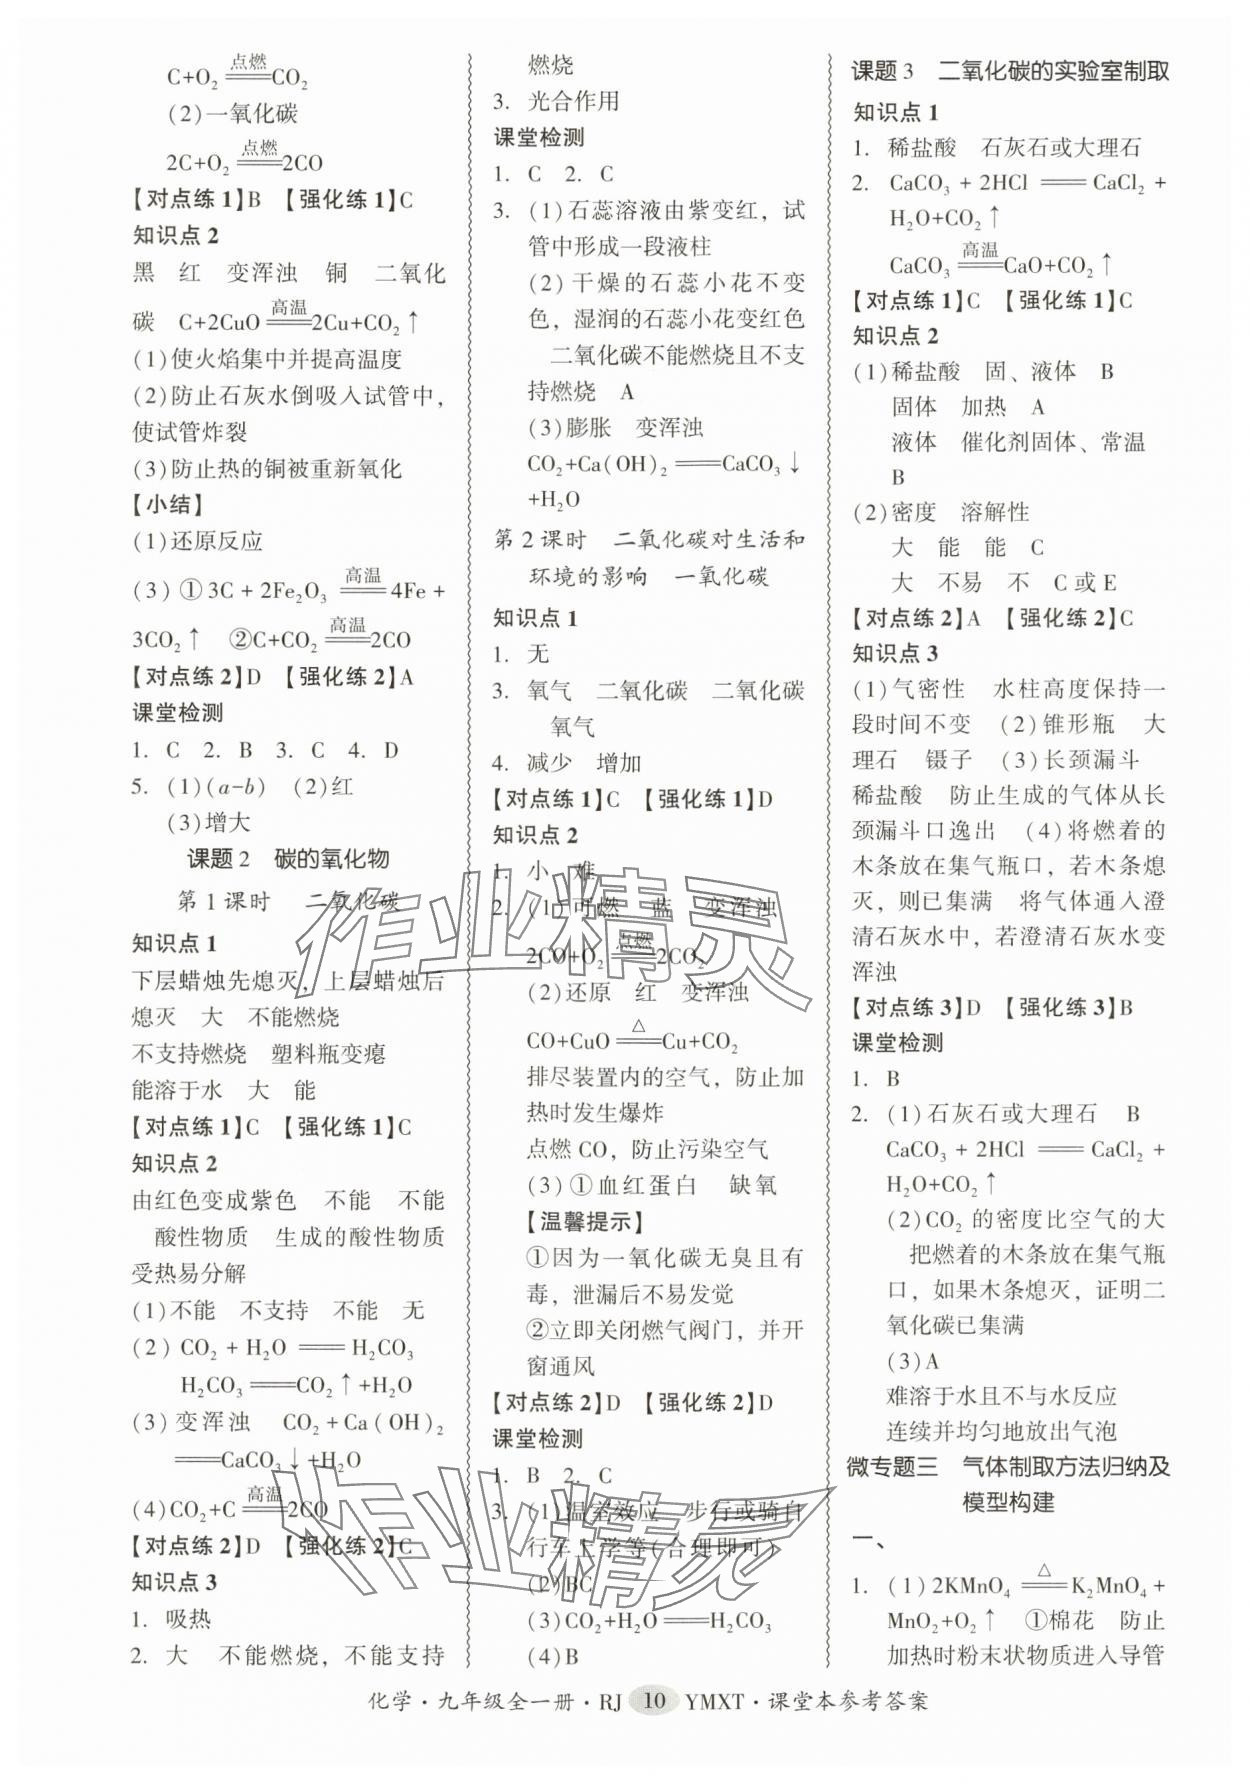 C+O₂ ══点燃══ CO₂
(2)一氧化碳
2C+O₂ ══点燃══ 2CO
【对点练1】B 【强化练1】C
知识点2
黑 红 变浑浊 铜 二氧化
碳 C+2CuO ══高温══ 2Cu+CO₂↑
(1)使火焰集中并提高温度
(2)防止石灰水倒吸入试管中，
使试管炸裂
(3)防止热的铜被重新氧化
【小结】
(1)还原反应
(3)①3C+2Fe₂O₃ ══高温══ 4Fe+
3CO₂↑ ②C+CO₂ ══高温══ 2CO
【对点练2】D 【强化练2】A
课堂检测
1. C 2. B 3. C 4. D
5. (1)(a-b) (2)红
(3)增大
课题2 碳的氧化物
第1课时 二氧化碳
知识点1
下层蜡烛先熄灭，上层蜡烛后
熄灭 大 不能燃烧
不支持燃烧 塑料瓶变瘪
能溶于水 大 能
【对点练1】C 【强化练1】C
知识点2
由红色变成紫色 不能 不能
酸性物质 生成的酸性物质
受热易分解
(1)不能 不支持 不能 无
(2) CO₂+H₂O ══ H₂CO₃
H₂CO₃ ══ CO₂↑+H₂O
(3)变浑浊 CO₂+Ca(OH)₂
══CaCO₃↓+H₂O
(4)CO₂+C ══高温══ 2CO
【对点练2】D 【强化练2】C
知识点3
1. 吸热
2. 大 不能燃烧，不能支持
燃烧
3. 光合作用
课堂检测
1. C 2. C
3. (1)石蕊溶液由紫变红，试
管中形成一段液柱
(2)干燥的石蕊小花不变
色，湿润的石蕊小花变红色
二氧化碳不能燃烧且不支
持燃烧 A
(3)膨胀 变浑浊
CO₂+Ca(OH)₂ ══ CaCO₃↓
+H₂O
第2课时 二氧化碳对生活和
环境的影响 一氧化碳
知识点1
1. 无
3. 氧气 二氧化碳 二氧化碳
氧气
4. 减少 增加
【对点练1】C 【强化练1】D
知识点2
1. 小 难
2. (1)可燃 蓝 变浑浊
2CO+O₂ ══点燃══ 2CO₂
(2)还原 红 变浑浊
CO+CuO ══△══ Cu+CO₂
排尽装置内的空气，防止加
热时发生爆炸
点燃CO，防止污染空气
(3)①血红蛋白 缺氧
【温馨提示】
①因为一氧化碳无臭且有
毒，泄漏后不易发觉
②立即关闭燃气阀门，并开
窗通风
【对点练2】D 【强化练2】D
课堂检测
1. B 2. C
3. (1)温室效应 步行或骑自
行车上学等(合理即可)
(2)BC
(3)CO₂+H₂O ══ H₂CO₃
(4)B
课题3 二氧化碳的实验室制取
知识点1
1. 稀盐酸 石灰石或大理石
2. CaCO₃+2HCl ══ CaCl₂+
H₂O+CO₂↑
CaCO₃ ══高温══ CaO+CO₂↑
【对点练1】C 【强化练1】C
知识点2
(1)稀盐酸 固、液体 B
固体 加热 A
液体 催化剂固体、常温
B
(2)密度 溶解性
大 能 能 C
大 不易 不 C或E
【对点练2】A 【强化练2】C
知识点3
(1)气密性 水柱高度保持一
段时间不变 (2)锥形瓶 大
理石 镊子 (3)长颈漏斗
稀盐酸 防止生成的气体从长
颈漏斗口逸出 (4)将燃着的
木条放在集气瓶口，若木条熄
灭，则已集满 将气体通入澄
清石灰水中，若澄清石灰水变
浑浊
【对点练3】D 【强化练3】B
课堂检测
1. B
2. (1)石灰石或大理石 B
CaCO₃+2HCl ══ CaCl₂+
H₂O+CO₂↑
(2)CO₂的密度比空气的大
把燃着的木条放在集气瓶
口，如果木条熄灭，证明二
氧化碳已集满
(3)A
难溶于水且不与水反应
连续并均匀地放出气泡
微专题三 气体制取方法归纳及
模型构建
一、
1. (1)2KMnO₄ ══△══ K₂MnO₄+
MnO₂+O₂↑ ①棉花 防止
加热时粉末状物质进入导管
化学·九年级全一册·RJ 10 YMXT·课堂本参考答案
作业精灵
作业精灵